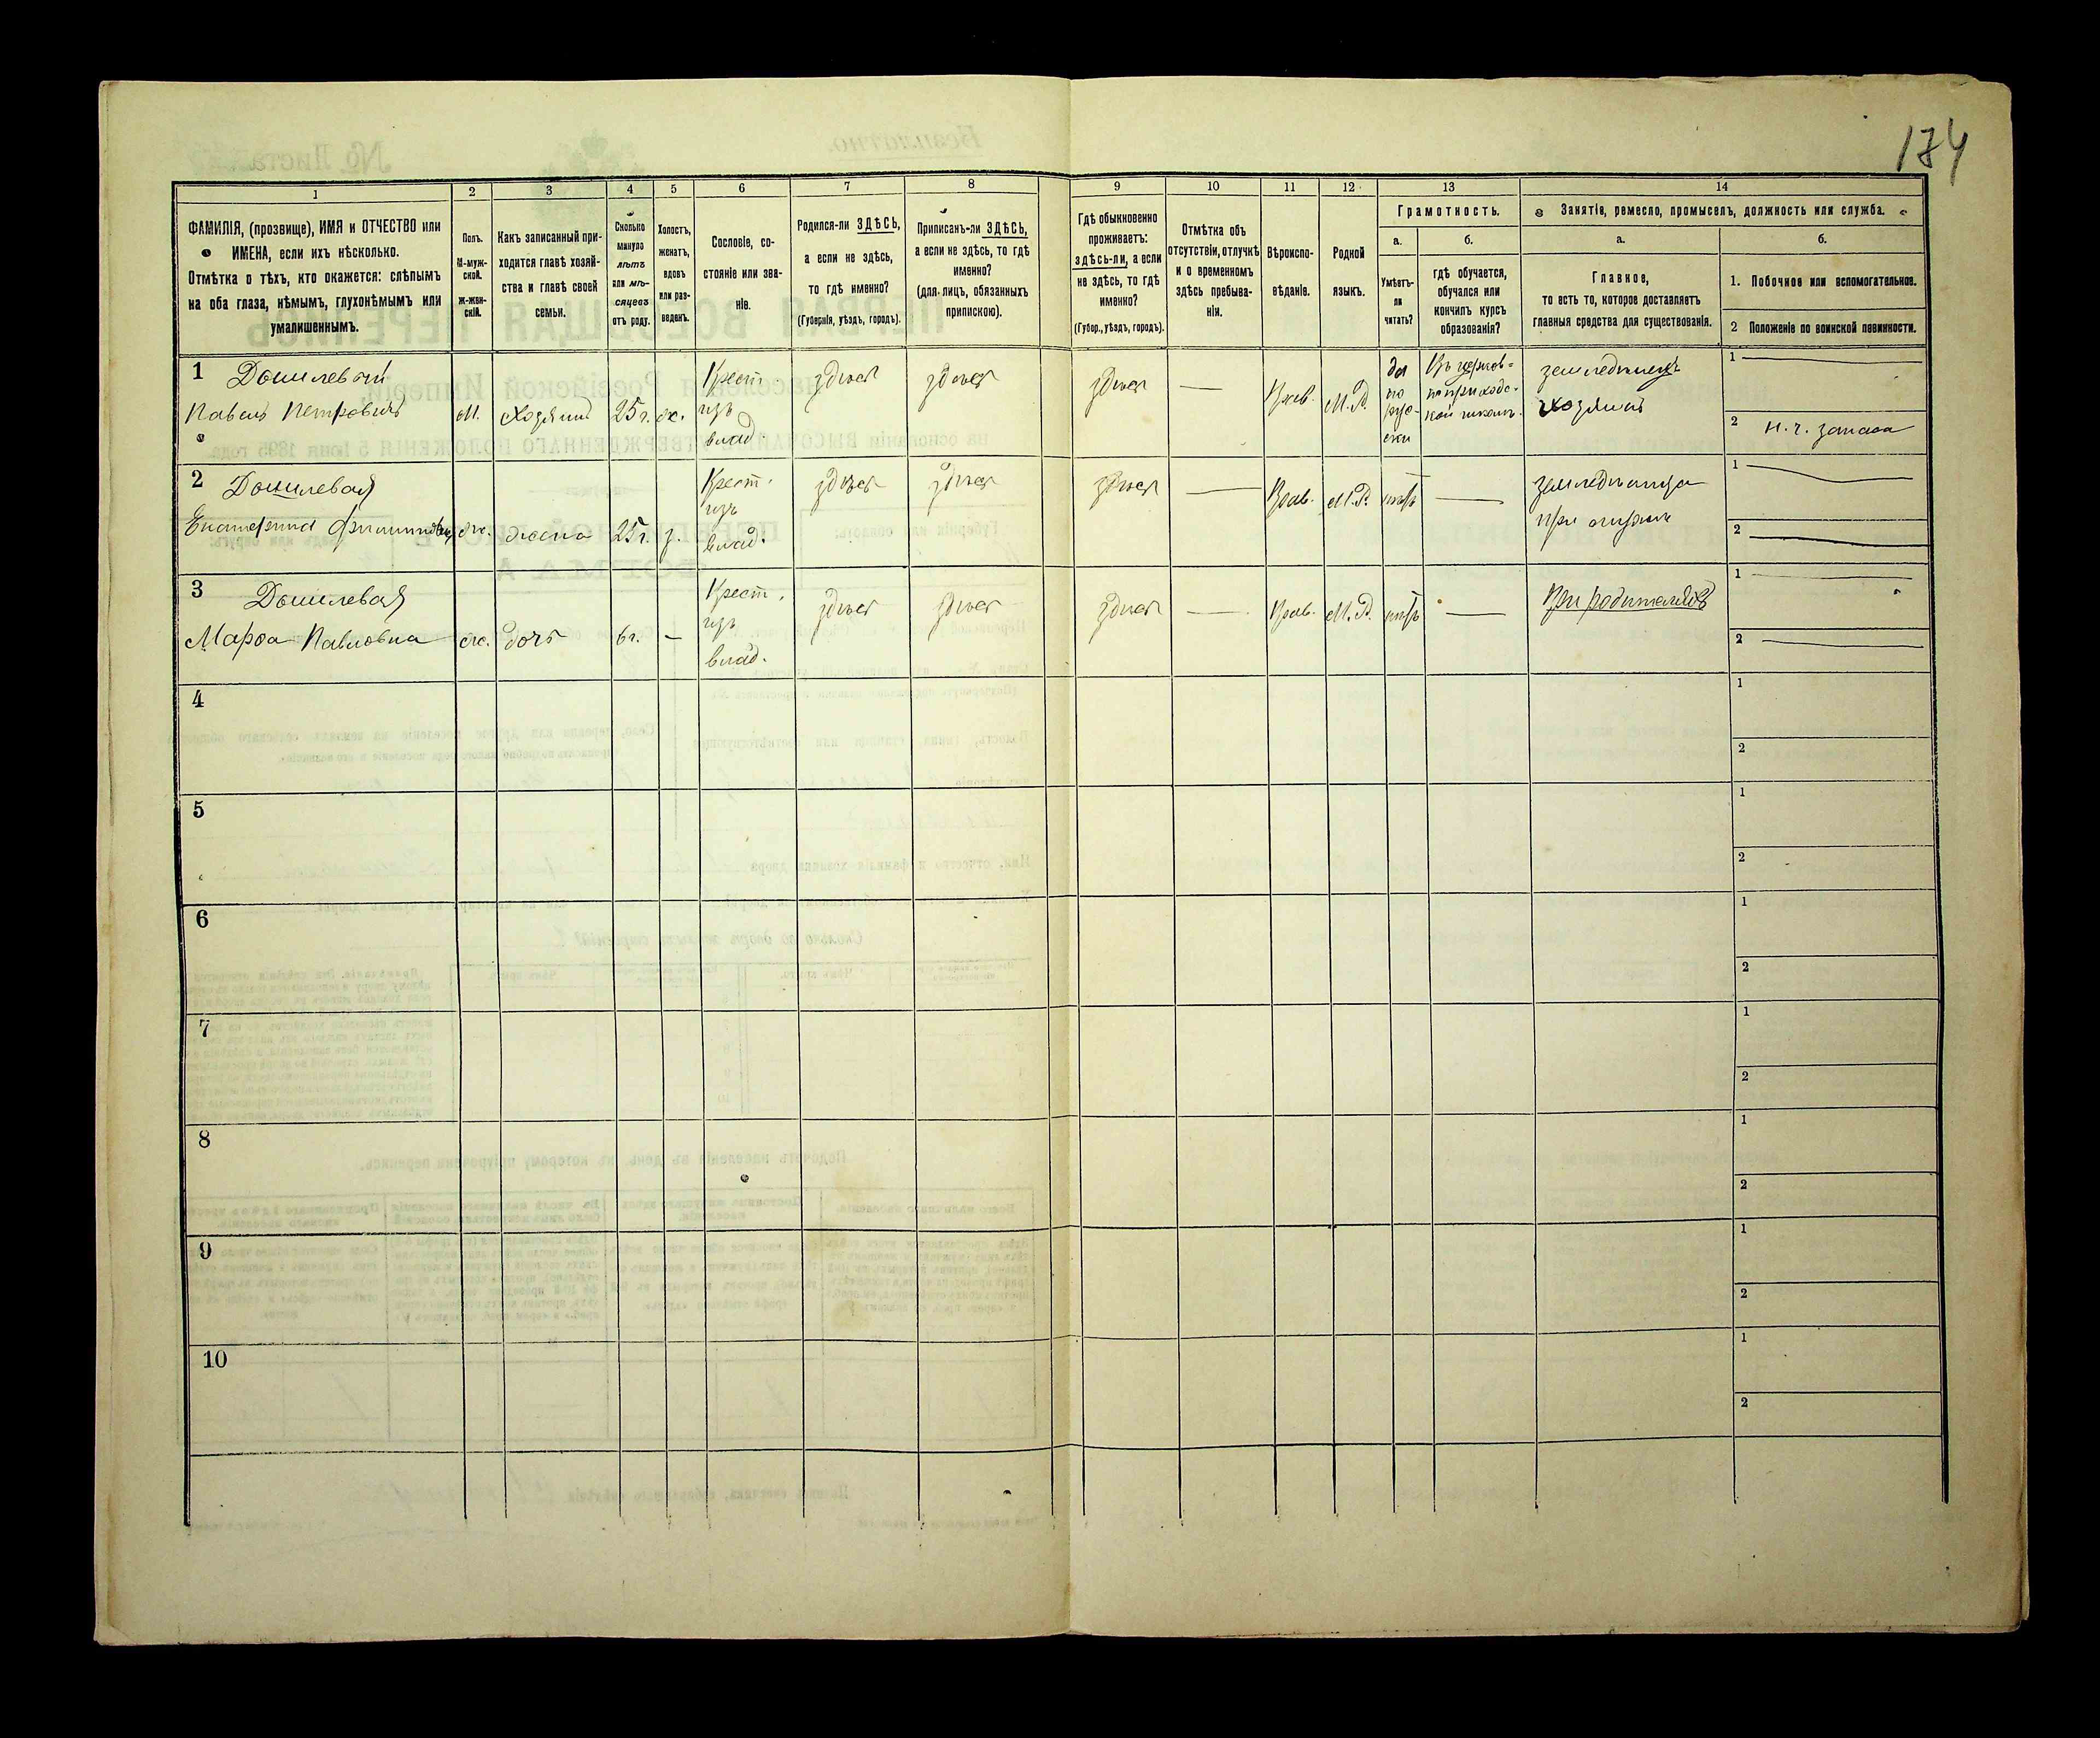 174
1 2 3 4 5 6 7 8 9 10 11 12 13 14
ФАМИЛІЯ, (прозвище), ИМЯ и ОТЧЕСТВО или
ИМЕНА, если ихъ нѣсколько.
Отмѣтка о тѣхъ, кто окажется: слѣпымъ
на оба глаза, нѣмымъ, глухонѣмымъ или
умалишеннымъ.
Полъ.
М-муж-
ской.
Ж-жен-
скій.
Какъ записанный при-
ходится главѣ хозяй-
ства и главѣ своей
семьи.
Сколько
минуло
лѣтъ
или мѣ-
сяцевъ
отъ роду.
Холостъ,
женатъ,
вдовъ
или раз-
веденъ.
Сословіе, со-
стояніе или зва-
ніе.
Родился-ли ЗДѢСЬ,
а если не здѣсь,
то гдѣ именно?
(Губернія, уѣздъ, городъ).
Приписанъ-ли ЗДѢСЬ,
а если не здѣсь, то гдѣ
именно?
(для лицъ, обязанныхъ
припискою).
Гдѣ обыкновенно
проживаетъ:
здѣсь-ли, а если
не здѣсь, то гдѣ
именно?
(Губер., уѣздъ, городъ).
Отмѣтка объ
отсутствіи, отлучкѣ
и о временномъ
здѣсь пребыва-
ніи.
Вѣроиспо-
вѣданіе.
Родной
языкъ.
Грамотность.
а. б.
Умѣетъ-
ли
читать?
гдѣ обучается,
обучался или
кончилъ курсъ
образованія?
Занятіе, ремесло, промыселъ, должность или служба.
а. б.
Главное,
то есть то, которое доставляетъ
главныя средства для существованія.
1. Побочное или вспомогательное.
2 Положеніе по воинской повинности.
1
Павелъ Петровичъ
М. Хозяинъ 25 г. ж.
Крест.
изъ
влад.
здѣсь здѣсь здѣсь — Прав. М.Р.
да
по
рус-
ски
Въ церков-
но приходс-
кой школѣ.
земледѣлецъ
хозяинъ
1 —
2 н. ч. запаса
2
Екатерина
ж. жена 25 г. з.
Крест.
изъ
влад.
здѣсь здѣсь здѣсь — Прав. М.Р. нѣтъ —
при мужѣ
1 —
2 —
3
Марѳа Павловна
ж. дочь 6 г. —
Крест.
изъ
влад.
здѣсь здѣсь здѣсь — Прав. М.Р. нѣтъ —
При родителяхъ
1 —
2 —
4
1
2
5
1
2
6
1
2
7
1
2
8
1
2
9
1
2
10
1
2